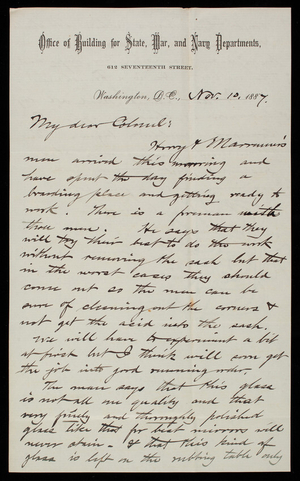 Office of Building for State, War, and Navy Departments,
612 SEVENTEENTH STREET,
Washington, D.C., Nov. 10, 1887.
My dear Colonel:
Henry & Marrimer's
men arrived this morning and
have spent the day finding a
boarding place and getting ready to
work. There is a foreman with
three men. He says that they
will try their best to do this work
without removing the sash but that
in the worst cases they should
come out so the men can be
sure of cleaning out the corners &
not get the acid into the sash.
We will have to experiment a bit
at first but I think will soon get
the job into good running order.
The man says that this glass
is not all one quality and that
very finely and thoroughly polished
glass like that for best mirrors will
never stain - & that this kind of
glass is left on the rubbing table only